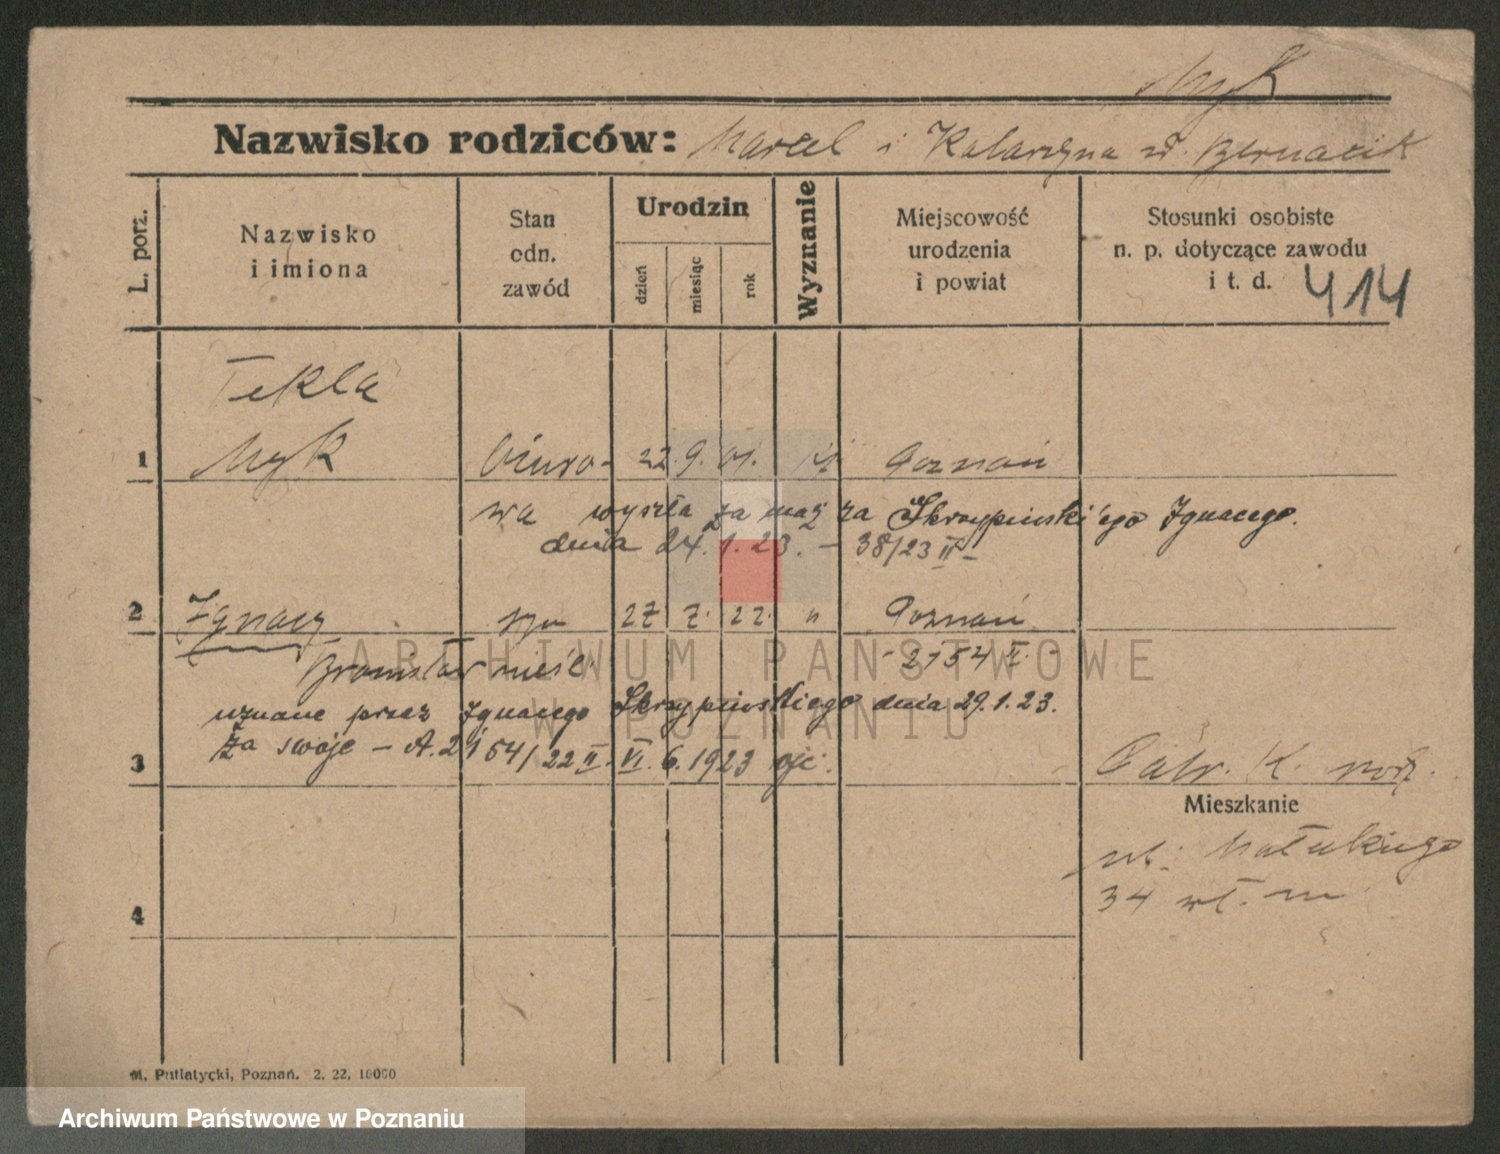 Myk
Nazwisko rodziców: Marcel i Katarzyna z d. Bernacik
L. porz.
Nazwisko i imiona
Stan odn. zawód
Urodzin
dzień
miesiąc
rok
Wyznanie
Miejscowość urodzenia i powiat
Stosunki osobiste n. p. dotyczące zawodu i t. d.
414
Tekla
1 Myk biuro- 22. 9. 01. Poznań
wa wyszła za mąż za Skrzypińskiego Ignacego.
dnia 24. 1. 23. – 38/23 II –
2 Ignacy syn 27 7. 22. " Poznań
Bronisław nieśl. 2154 II
uznane przez Ignacego Skrzypińskiego dnia 29.1.23.
za swoje – A. 2154/22 II. VI. 6. 1923
3
Mieszkanie
ul.
34
4
M. Putiatycki, Poznań. 2. 22. 10000
ARCHIWUM PAŃSTWOWE
W POZNANIU
Archiwum Państwowe w Poznaniu